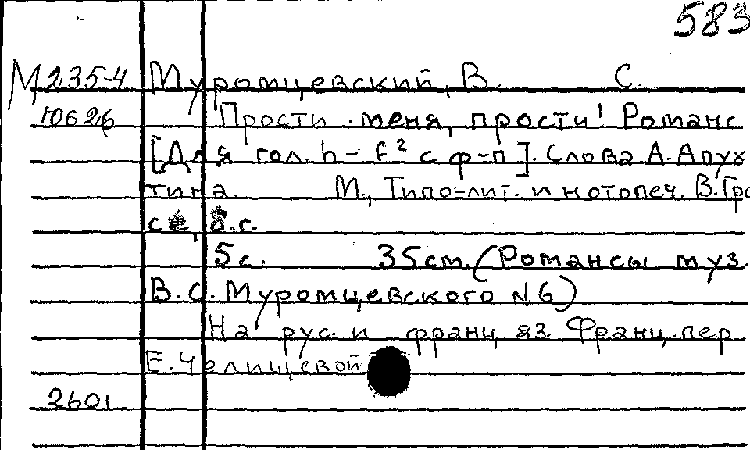 583
М 235-4 Муромцевский, В. С.
10626 Прости меня, прости! Романс
[Для гол. h – f² с ф-п]. Слова А. Апух
тина. М., Типо-лит. и нотопеч. В. Гро
ссе,
5 с. 35 см. (Романсы муз.
В. С. Муромцевского №6)
На рус. и франц. яз. Франц. пер.
Е. Челищевой
2601